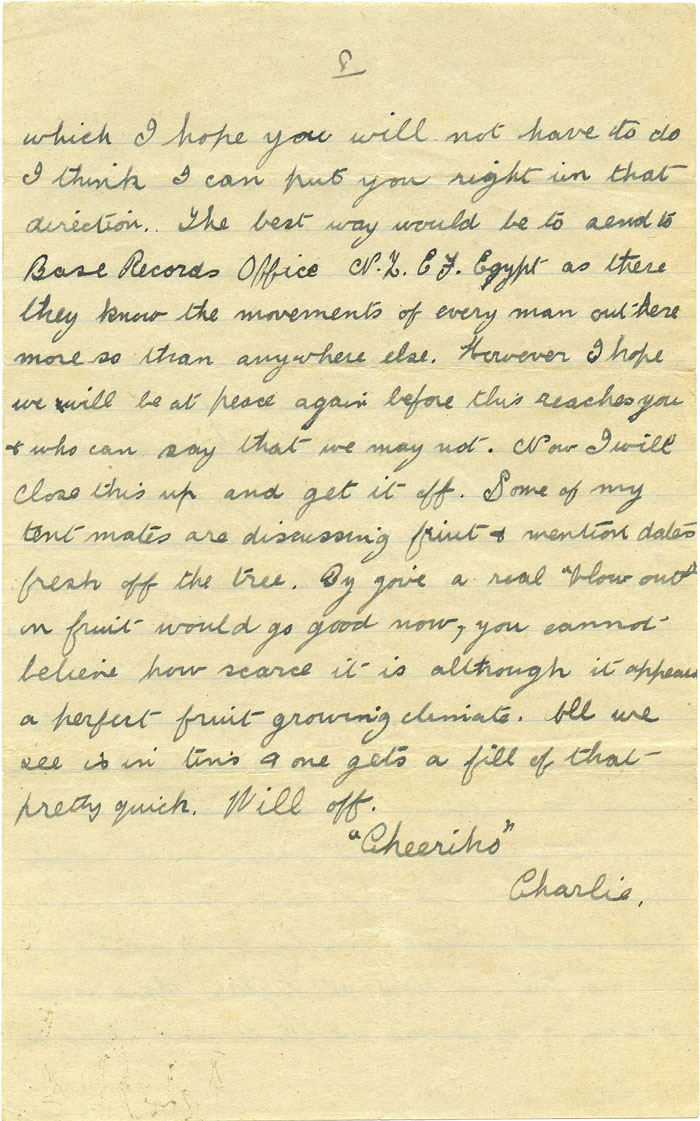 8
which I hope you will not have to do
I think I can put you right in that
direction. The best way would be to send to
Base Records Office N.Z.E.F. Egypt as there
they know the movements of every man out here
more so than anywhere else. However I hope
we will be at peace again before this reaches you
& who can say that we may not. Now I will
close this up and get it off. Some of my
tent mates are discussing fruit & mention dates
fresh off the tree. By gove a real "blow out"
in fruit would go good now, you cannot
believe how scarce it is although it appears
a perfect fruit growing climate. All we
see is in tins & one gets a fill of that
pretty quick. Will off.
"Cheeriho"
Charlie.